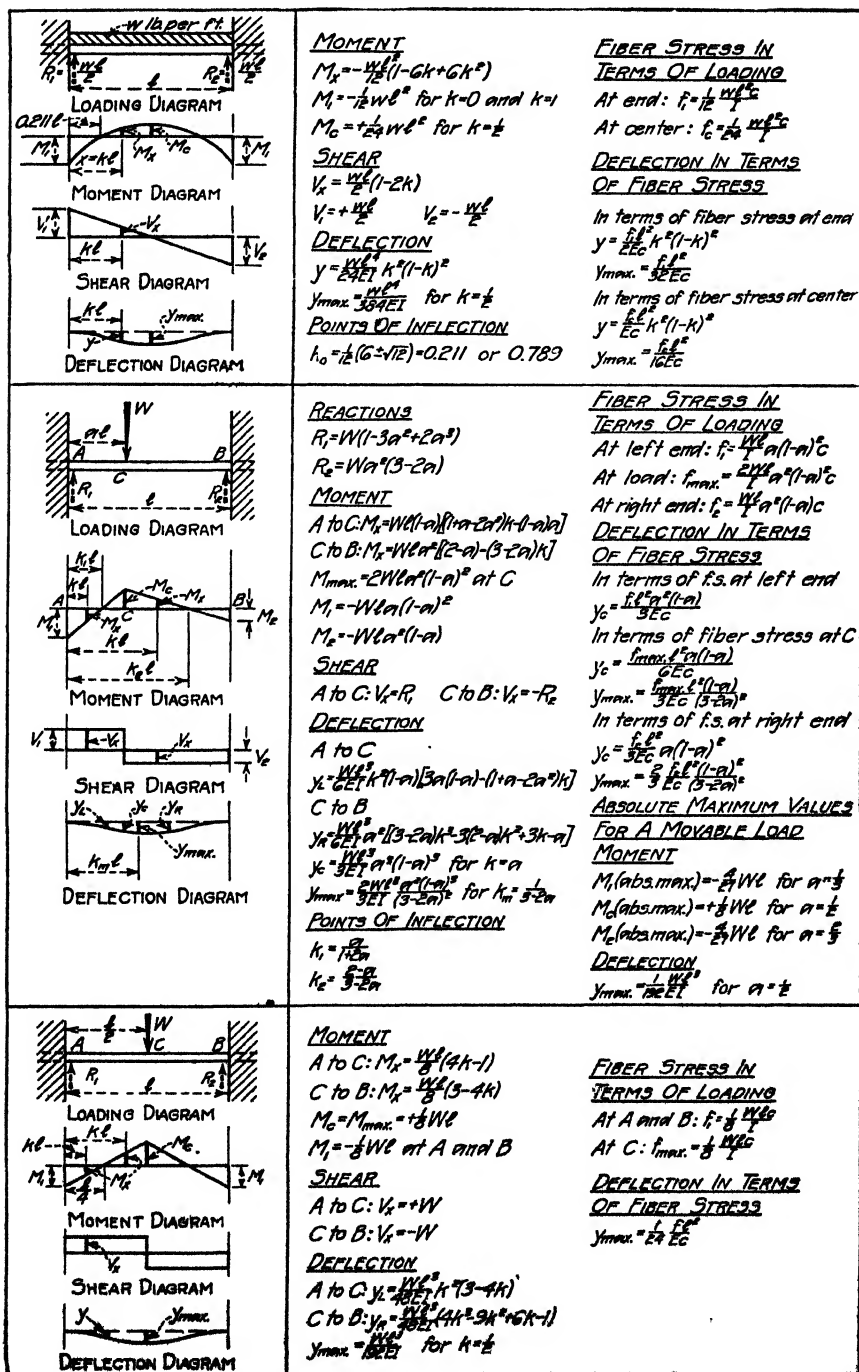 w lb per ft.
R₁= wl/2
R₂= wl/2
l
LOADING DIAGRAM
0.211l
M₁
x=kl
Mₓ
M_c
M₁
MOMENT DIAGRAM
V₁
Vₓ
kl
V₂
SHEAR DIAGRAM
kl
y
ymax.
DEFLECTION DIAGRAM
MOMENT
Mₓ=-wl²/12(1-6k+6k²)
M₁=-1/12 wl² for k=0 and k=1
M_c=+1/24 wl² for k=1/2
SHEAR
Vₓ=wl/2(1-2k)
V₁=+wl/2 V₂=-wl/2
DEFLECTION
y=wl⁴/24EI k²(1-k)²
ymax.=wl⁴/384EI for k=1/2
POINTS OF INFLECTION
k₀=1/12(6±√12)=0.211 or 0.789
FIBER STRESS IN
TERMS OF LOADING
At end: f₁=1/12 wl²c/I
At center: f_c=1/24 wl²c/I
DEFLECTION IN TERMS
OF FIBER STRESS
In terms of fiber stress at end
y=f₁l²/2Ec k²(1-k)²
ymax.=f₁l²/32Ec
In terms of fiber stress at center
y=f_cl²/Ec k²(1-k)²
ymax.=f_cl²/16Ec
W
al
A
B
C
R₁
R₂
l
LOADING DIAGRAM
k₁l
kl
A
M_c
Mₓ
B
M₁
Mₓ
C
M₂
kl
k₂l
MOMENT DIAGRAM
V₁
Vₓ
Vₓ
V₂
SHEAR DIAGRAM
y_L
y_c
y_R
ymax.
k_m l
DEFLECTION DIAGRAM
REACTIONS
R₁=W(1-3a²+2a³)
R₂=Wa²(3-2a)
MOMENT
A to C: Mₓ=Wl(1-a)[(1+a-2a²)k-(1-a)a]
C to B: Mₓ=Wla²[(2-a)-(3-2a)k]
Mmax.=2Wla²(1-a)² at C
M₁=-Wla(1-a)²
M₂=-Wla²(1-a)
SHEAR
A to C: Vₓ=R₁ C to B: Vₓ=-R₂
DEFLECTION
A to C
y_L=Wl³/6EI k²(1-a)[3a(1-a)-(1+a-2a²)k]
C to B
y_R=Wl³/6EI a²[(3-2a)k³-3(2-a)k²+3k-a]
y_c=Wl³/3EI a³(1-a)³ for k=a
ymax=2Wl³/3EI a²(1-a)³/(3-2a)² for k_m=1/3-2a
POINTS OF INFLECTION
k₁=a/1+2a
k₂=2-a/3-2a
FIBER STRESS IN
TERMS OF LOADING
At left end: f₁=Wl/I a(1-a)²c
At load: fmax.=2Wl/I a²(1-a)²c
At right end: f₂=Wl/I a²(1-a)c
DEFLECTION IN TERMS
OF FIBER STRESS
In terms of f.s. at left end
y_c=f₁l²a²(1-a)/3Ec
In terms of fiber stress at C
y_c=fmax.l²a(1-a)/6Ec
ymax.=fmax.l²(1-a)/3Ec(3-2a)²
In terms of f.s. at right end
y_c=f₂l²/3Ec a(1-a)²
ymax.=2/3 f₂l²(1-a)²/Ec(3-2a)²
ABSOLUTE MAXIMUM VALUES
FOR A MOVABLE LOAD
MOMENT
M₁(abs.max.)=-4/27 Wl for a=1/3
M_c(abs.max.)=+1/8 Wl for a=1/2
M₂(abs.max.)=-4/27 Wl for a=2/3
DEFLECTION
ymax.=1/192 Wl³/EI for a=1/2
l/2
W
A
C
B
R₁
R₂
l
LOADING DIAGRAM
kl
kl
M_c
M₁
Mₓ
M₁
l/4
MOMENT DIAGRAM
Vₓ
SHEAR DIAGRAM
y
ymax.
DEFLECTION DIAGRAM
MOMENT
A to C: Mₓ=Wl/8(4k-1)
C to B: Mₓ=Wl/8(3-4k)
M_c=Mmax.=+1/8Wl
M₁=-1/8Wl at A and B
SHEAR
A to C: Vₓ=+W
C to B: Vₓ=-W
DEFLECTION
A to C: y_L=Wl³/48EI k²(3-4k)
C to B: y_R=Wl³/48EI(4k³-9k²+6k-1)
ymax.=Wl³/192EI for k=1/2
FIBER STRESS IN
TERMS OF LOADING
At A and B: f₁=1/8 Wlc/I
At C: fmax.=1/8 Wlc/I
DEFLECTION IN TERMS
OF FIBER STRESS
ymax.=1/24 fl²/Ec